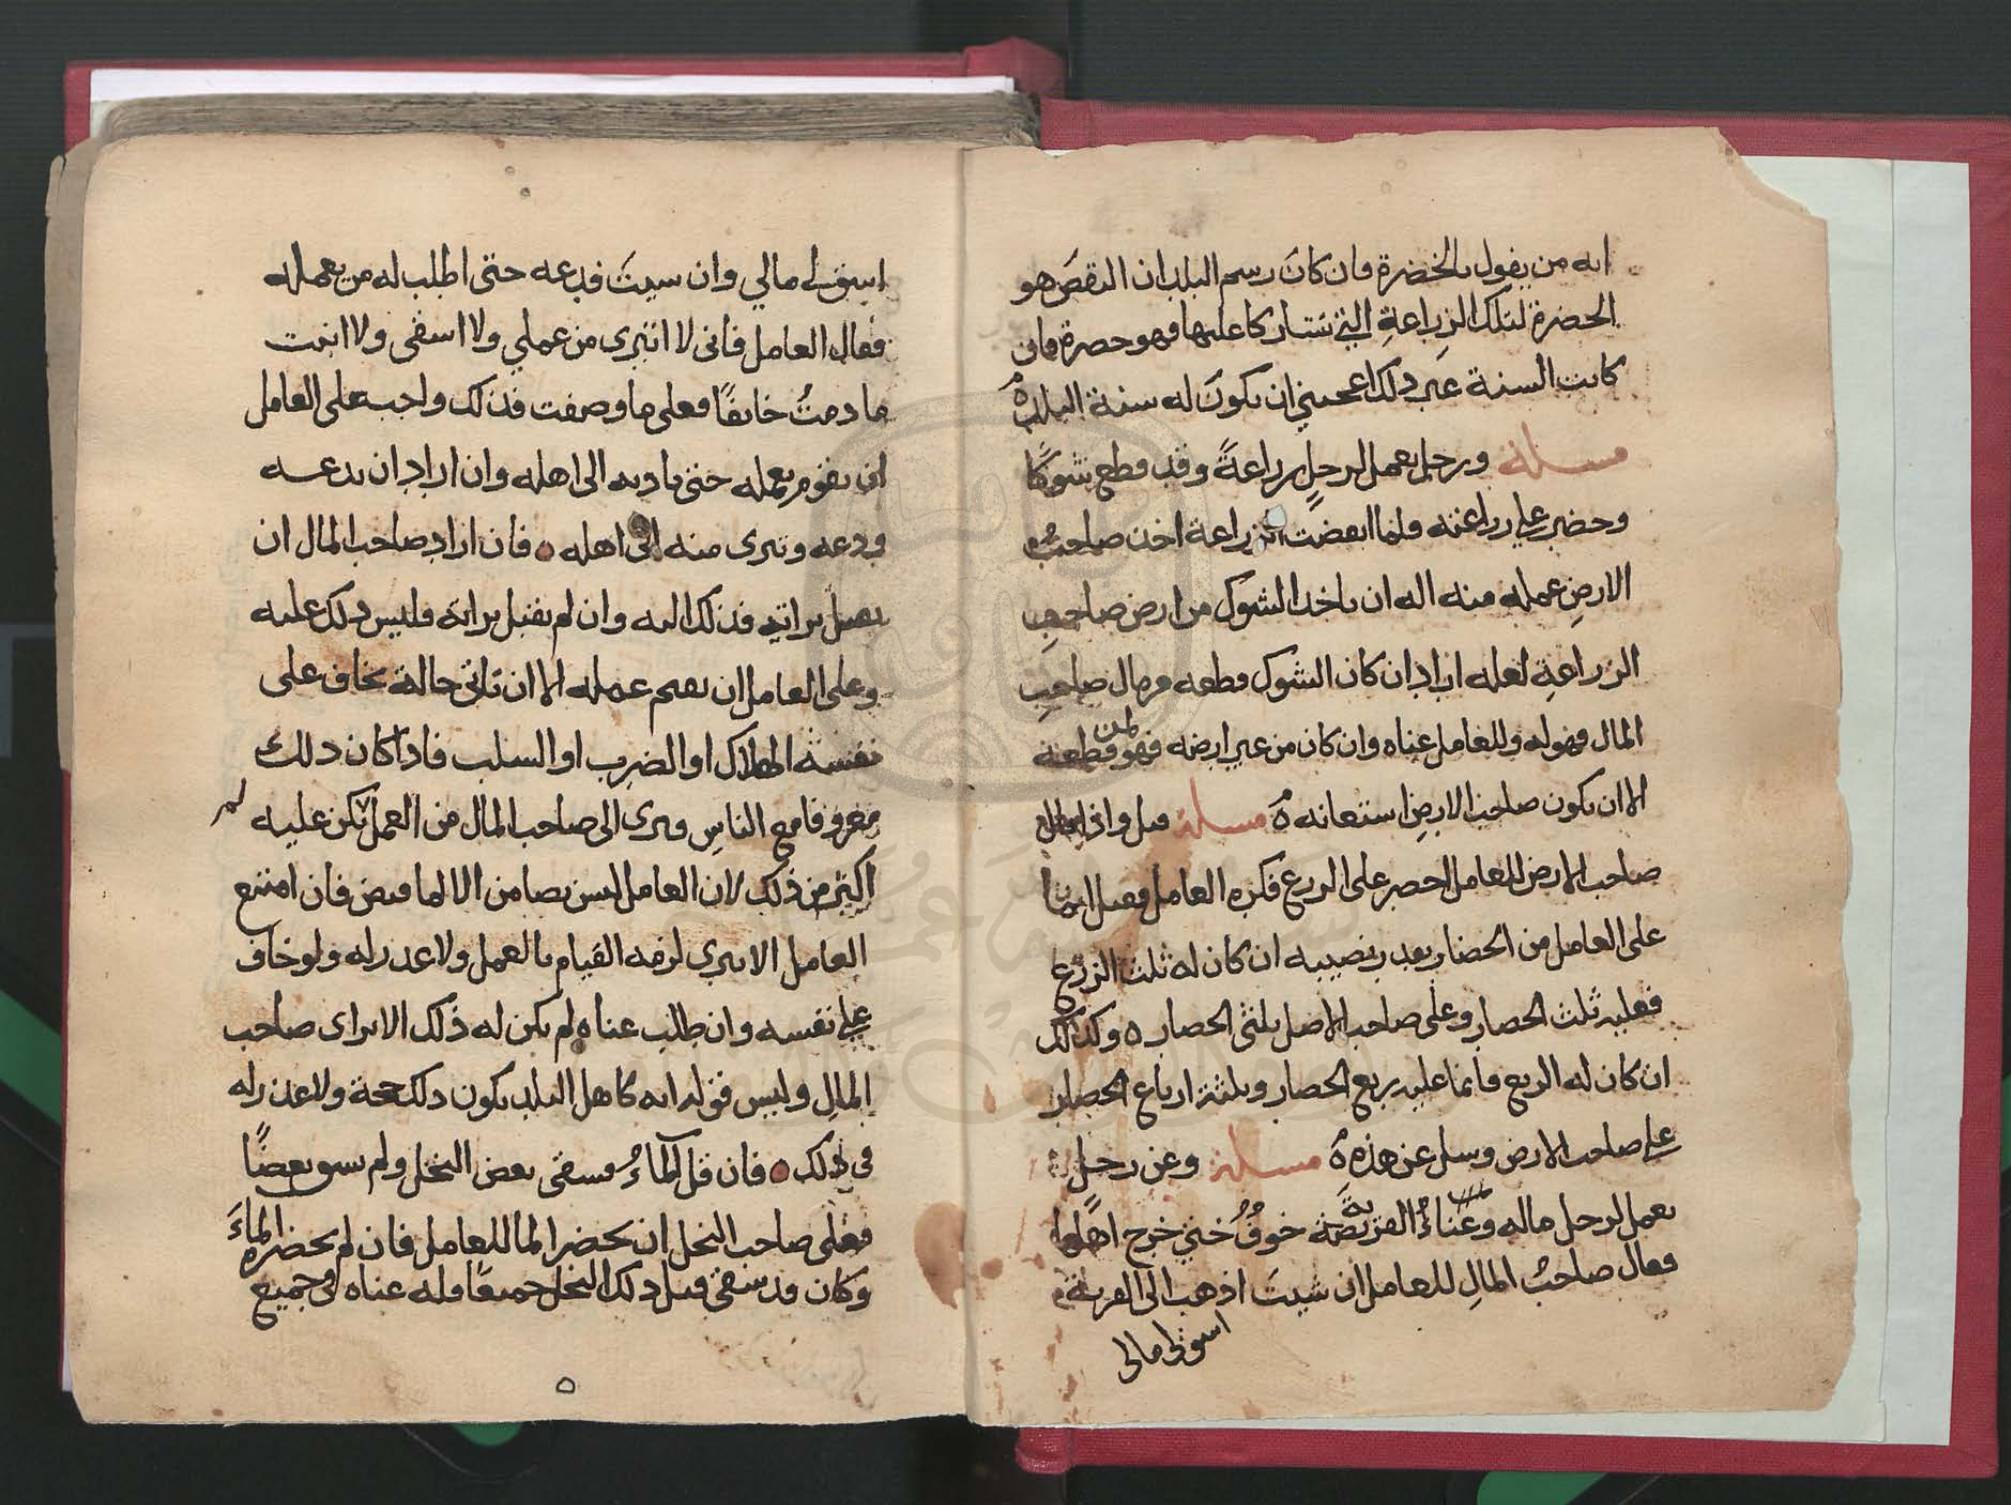 انه من يقول بالخضرة فان كان رسم البلد ان النقص هو
الحضرة لتلك الزراعةِ التي تشاركا عليها فهو حصرة فان
كانت السنة غير ذلك اعجبني ان يكون له سنة البلد ه
مسلة ورجل يعمل لرجلٍ زراعةً وقد قطع شوكًا
وحضر على زراعته فلما انقضت الزراعة اخذ صاحبُ
الارضِ عمله منه اله ان ياخذ الشوك من ارض صاحبِ
الزراعةِ لعله اراد ان كان الشوك قطعه من مال صاحبِ
المال فهو له وللعامل عناه وان كان من غير ارضه فهو لمن قطعه
الا ان يكون صاحب الارضِ استعانه ه مسلة قيل واذا قال
صاحب الارض للعامل احصر على الزرع فكره العامل فقيل انما
على العامل من الحضار بقدر نصيبه ان كان له ثلث الزرع
فعليه ثلث الحصار وعلى صاحب الاصل ثلثى الحصار ه وكذلك
ان كان له الربع فانما عليه ربع الحصار وثلثة ارباع الحصار
على صاحب الارض وسل عن هذه ه مسلة وعن رجل
يعمل لرجل ماله وعناءُ القرية خوفٌ حتى خرج اهلها
فقال صاحبُ المالِ للعامل ان شيتَ اذهب الى القرية
اسق لى مالى
اسق لى مالي وان سيتَ فدعه حتى اطلب له من يعمله
فقال العامل فاني لا اتبرى من عملي ولا اسقى ولا انبت
ما دمتُ خايفًا فعلى ما وصفت فذلك واجب على العامل
ان يقوم بعمله حتى يادیه الى اهله وان اراد ان يدعه
ودعه وتبرى منه الى اهله ه فان اراد صاحب المال ان
يقبل براته فذلك اليه وان لم يقبل براته فليس ذلك عليه
وعلى العامل ان يعمم عمله الا ان تاتى حالة يخاف على
نفسه الهلاك او الضرب او السلب فاذا كان ذلك
معروفا مع الناسِ وبرى الى صاحب المال من العمل لم يكن عليه
اكثر من ذلك لان العامل ليس بضامن الا لما قبض فان امتنع
العامل الا يبري لزمه القيام بالعمل ولا عذر له ولو خاف
على نفسه وان طلب عناه لم يكن له ذلك الا برای صاحب
المالِ وليس قوله انه كاهل البلد يكون ذلك حجة ولا عذر له
فى ذلك ه فان قل الماءُ فسقى بعض النخل ولم يسق بعضًا
فعلى صاحب النخل ان يحضر الما للعامل فان لم يحضره الماءَ
وكان قد سقى قبل ذلك النخل جميعًا فله عناه فى جميع